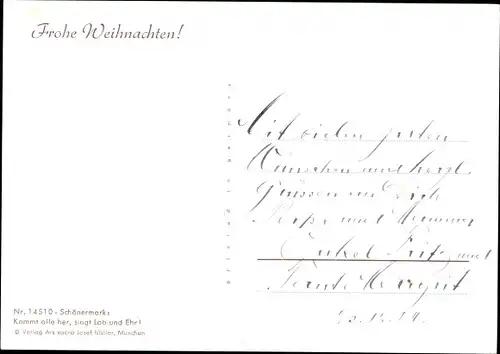 Frohe Weihnachten!
Mit vielen guten
Wünschen und herzl.
Grüssen an Dich
Papa und Mamma
Onkel Fritz und
Tante Margrit
Nr. 14510 - Schönermark:
Kommt alle her, singt Lob und Ehr!
© Verlag Ars sacra Josef Müller, München